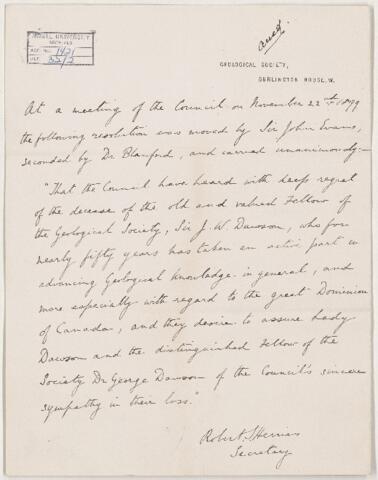 McGILL UNIVERSITY
ARCHIVES
ACC. NO. 1421
REF.
ansd.
GEOLOGICAL SOCIETY,
BURLINGTON HOUSE, W.
At a meeting of the Council on November 22nd 1899
the following resolution was moved by Sir John Evans,
seconded by Dr Blanford, and carried unanimously:-
"That the Council have heard with deep regret
of the decease of the old and valued Fellow of
the Geological Society, Sir J. W. Dawson, who for
nearly fifty years has taken an active part in
advancing Geological knowledge in general, and
more especially with regard to the great Dominion
of Canada, and they desire to assure Lady
Dawson and the distinguished Fellow of the
Society Dr George Dawson of the Council's sincere
sympathy in their loss."
Robert S. Herries
Secretary